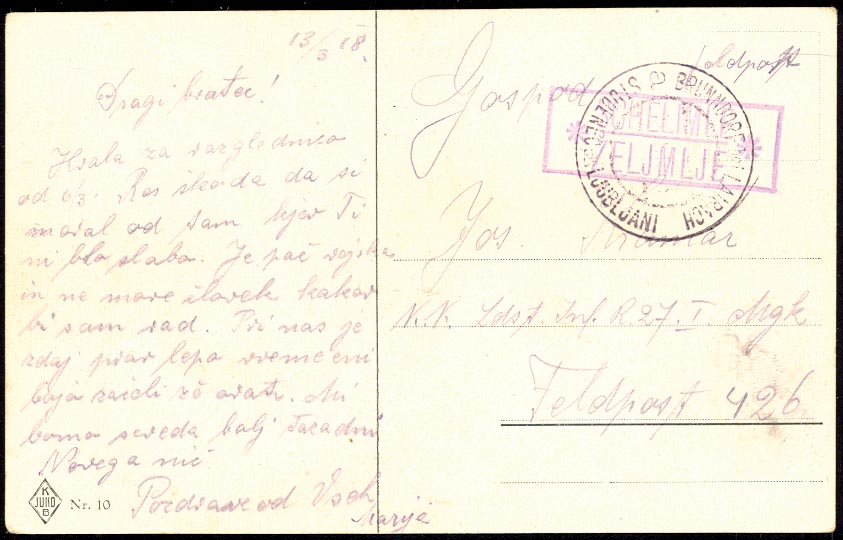 13/3 18.
Dragi bratec!
Hvala za razglednico
od 6/3. Res škoda da si
moral od tam kjer Ti
ni blo slabo. Je pač vojska
in ne more človek kakor
bi sam rad. Pri nas je
zdaj prav lepo vreme eni
bojo začeli žě orati. Mi
bomo seveda bolj tazadni
Novega nič.
Pozdrave od Vseh
Marija
K
JUHO
B
Nr. 10
Feldpost
Gospod
STUDENEC BRUNNDORF
LJUBLJANI LAIBACH
ŽELIMLJE
Jos. Kramar
K.K. Ldst. Inf. R. 27. I. Mgk
Feldpost 426